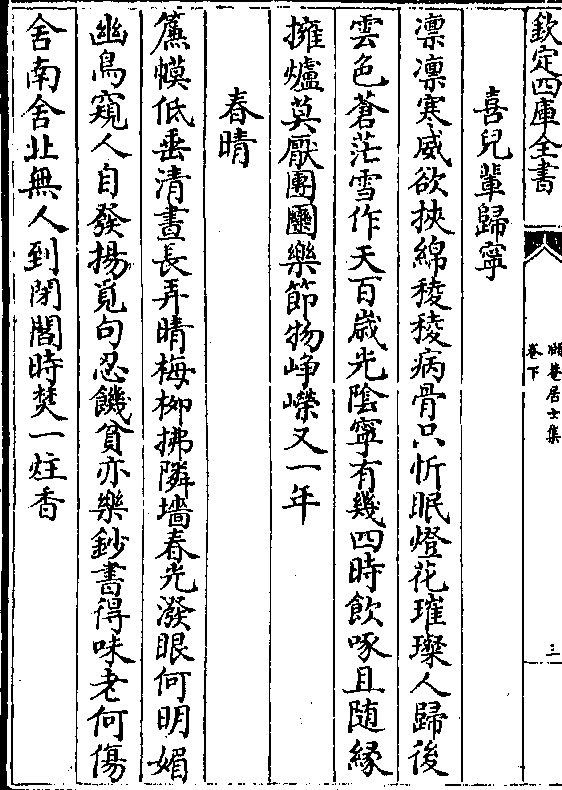 欽定四庫全書
頤菴居士集
卷下
三
喜兒輩歸寧
凛凛寒威欲挾綿稜稜病骨只忻眠燈花璀璨人歸後
雲色蒼茫雪作天百歳光陰寧有幾四時飲啄且随縁
擁爐莫厭團圞樂節物崢嶸又一年
春晴
簾幙低垂清晝長弄晴梅柳拂隣墻春光潑眼何明媚
幽鳥窺人自發揚覓句忍饑貧亦樂鈔書得味老何傷
舍南舍北無人到閉閤時焚一炷香